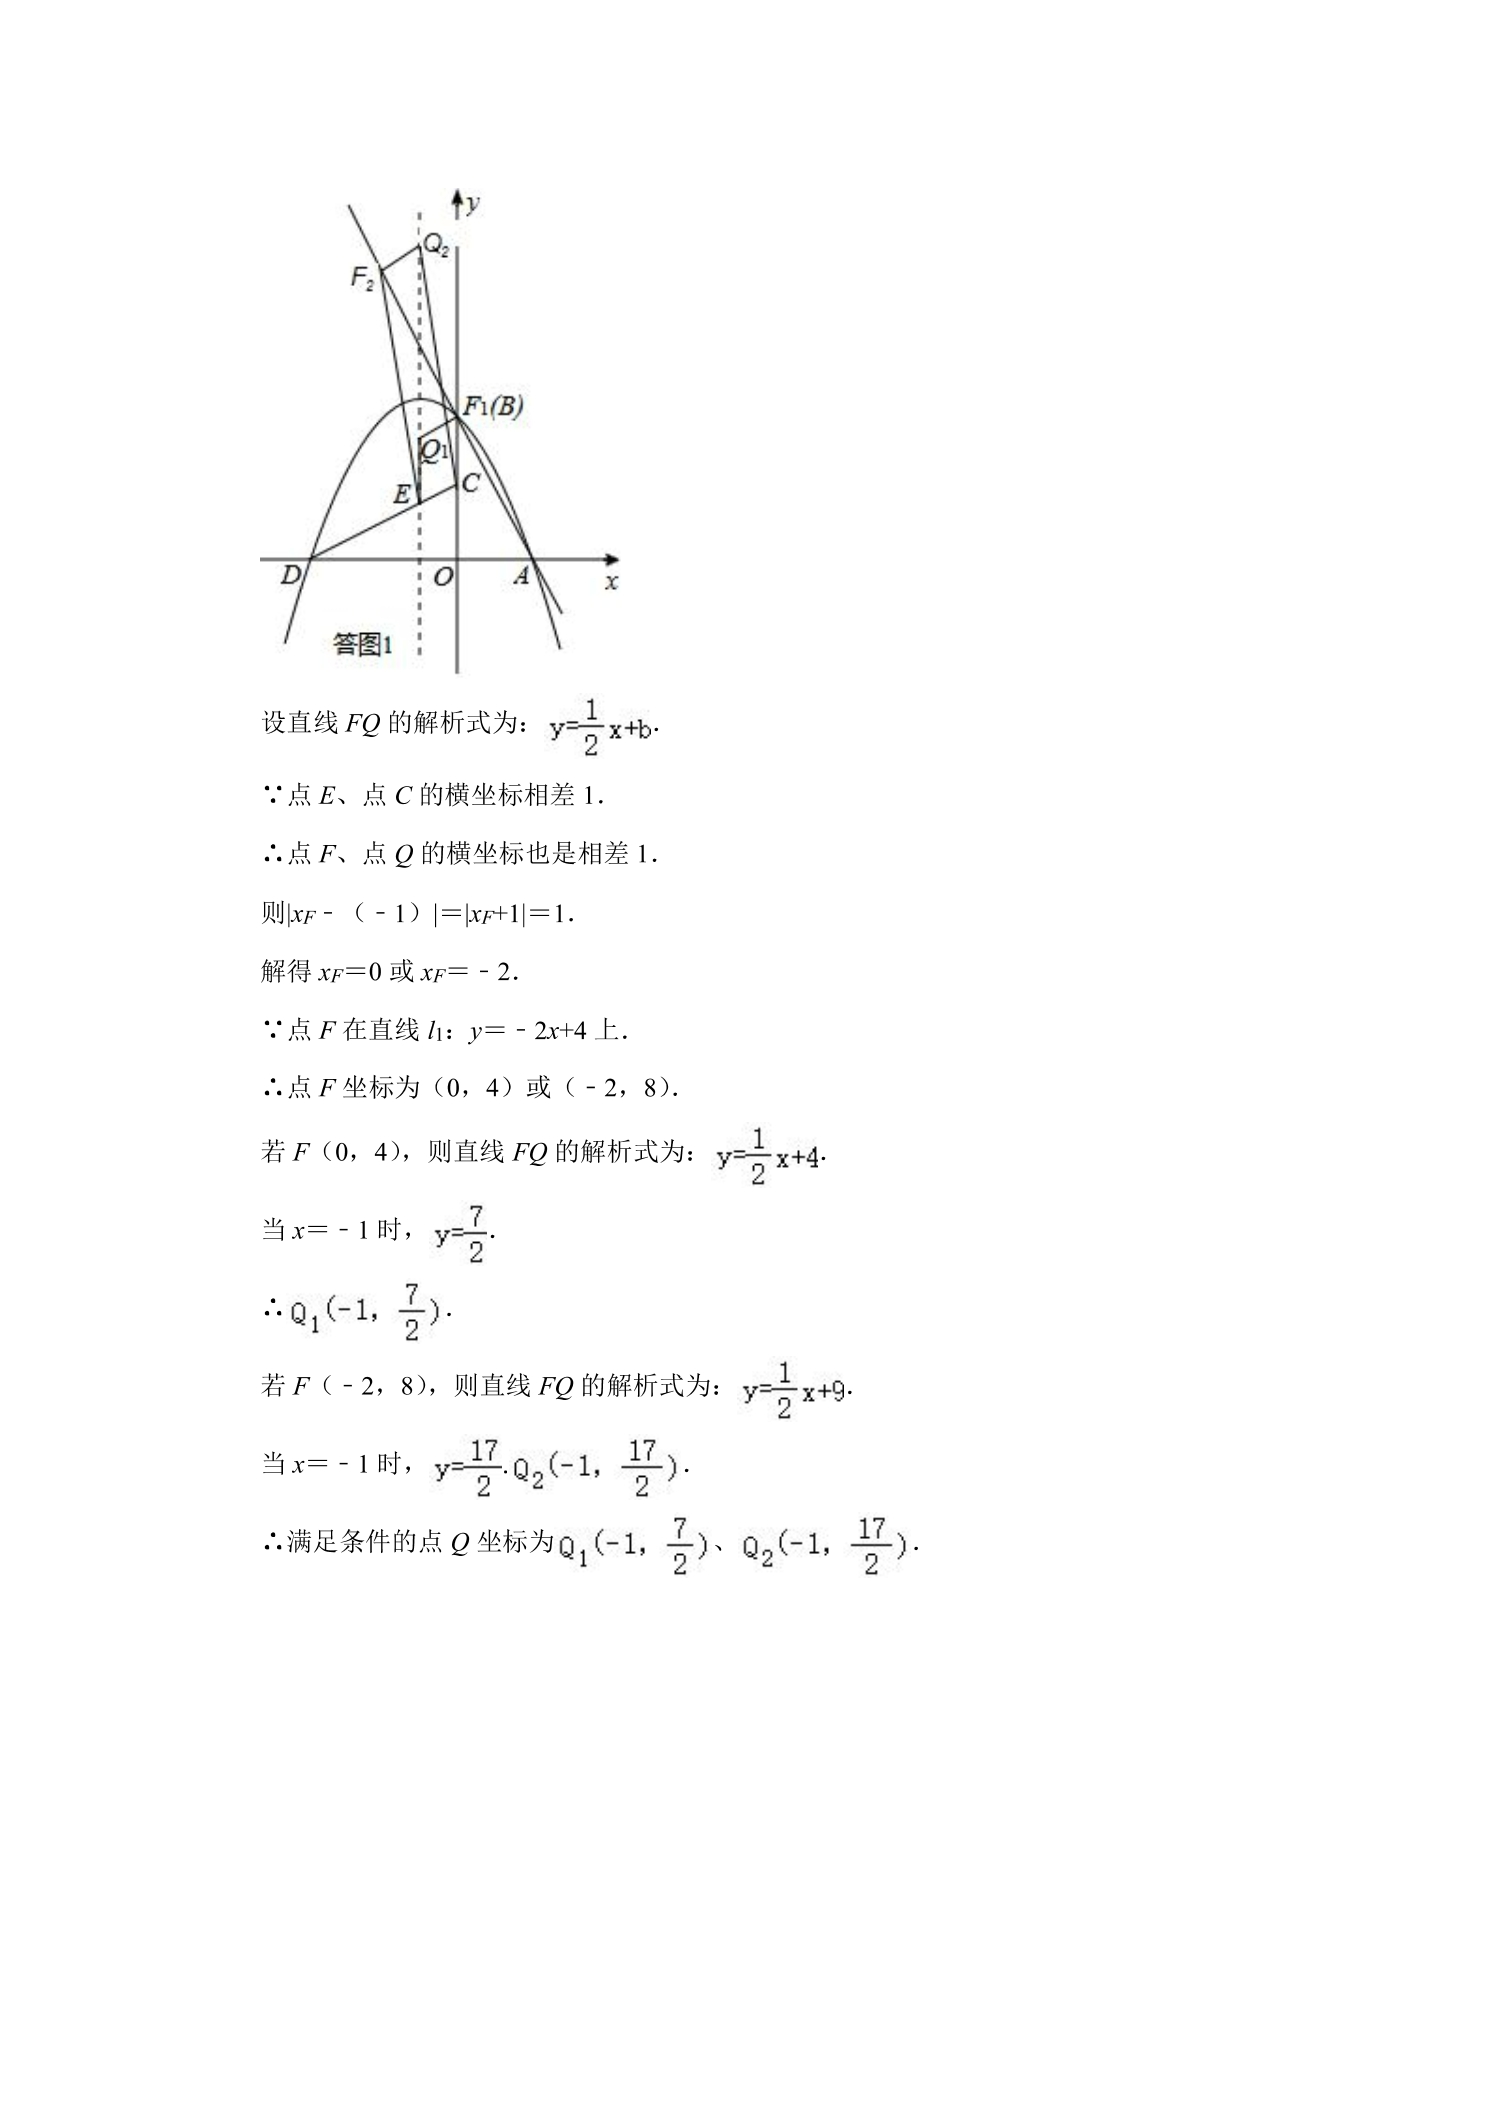 y
Q2
F2
F1(B)
Q1
E
C
D
O
A
x
答图1
设直线 FQ 的解析式为：y=1/2 x+b.
∵点 E、点 C 的横坐标相差 1．
∴点 F、点 Q 的横坐标也是相差 1．
则|xF﹣（﹣1）|＝|xF+1|＝1．
解得 xF＝0 或 xF＝﹣2．
∵点 F 在直线 l1：y＝﹣2x+4 上．
∴点 F 坐标为（0，4）或（﹣2，8）．
若 F（0，4），则直线 FQ 的解析式为：y=1/2 x+4.
当 x＝﹣1 时，y=7/2.
∴Q1(-1, 7/2)．
若 F（﹣2，8），则直线 FQ 的解析式为：y=1/2 x+9.
当 x＝﹣1 时，y=17/2.Q2(-1, 17/2)．
∴满足条件的点 Q 坐标为Q1(-1, 7/2)、Q2(-1, 17/2)．